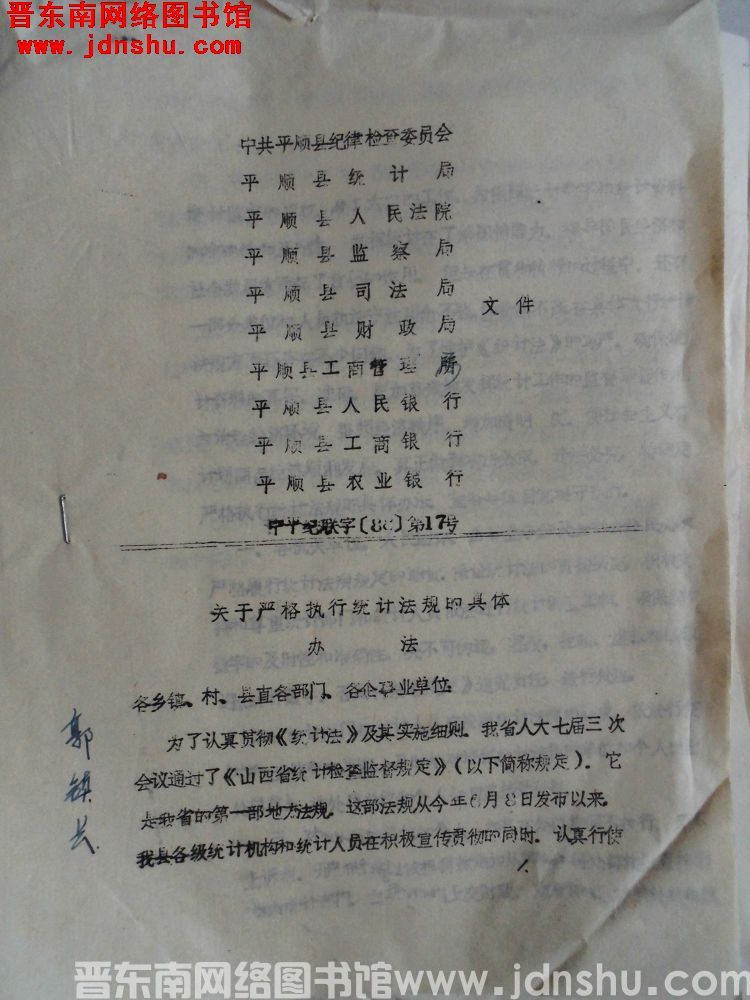 晋东南网络图书馆
www.jdnshu.com
中共平顺县纪律检查委员会
平顺县统计局
平顺县人民法院
平顺县监察局
平顺县司法局
文件
平顺县财政局
平顺县工商管理所
平顺县人民银行
平顺县工商银行
平顺县农业银行
中平纪联字〔88〕第17号
关于严格执行统计法规的具体
办法
各乡镇、村、县直各部门、各企事业单位
为了认真贯彻《统计法》及其实施细则.我省人大七届三次
会议通过了《山西省统计检查监督规定》(以下简称规定).它
是我省的第一部地方法规.这部法规从今年6月8日发布以来.
我县各级统计机构和统计人员在积极宣传贯彻的同时.认真行使
郭镇长
晋东南网络图书馆www.jdnshu.com